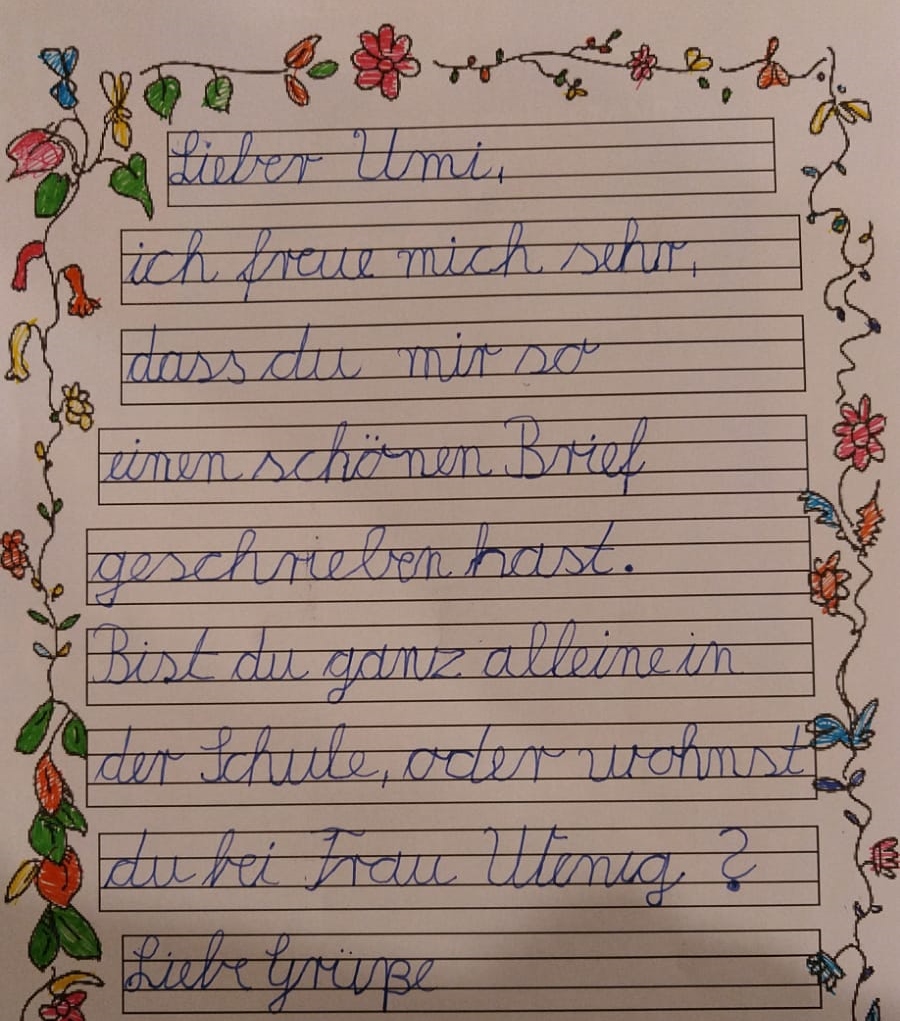 Lieber Umi,
ich freue mich sehr,
dass du mir so
einen schönen Brief
geschrieben hast.
Bist du ganz alleine in
der Schule, oder wohnst
du bei Frau Utenig ?
Liebe Grüße